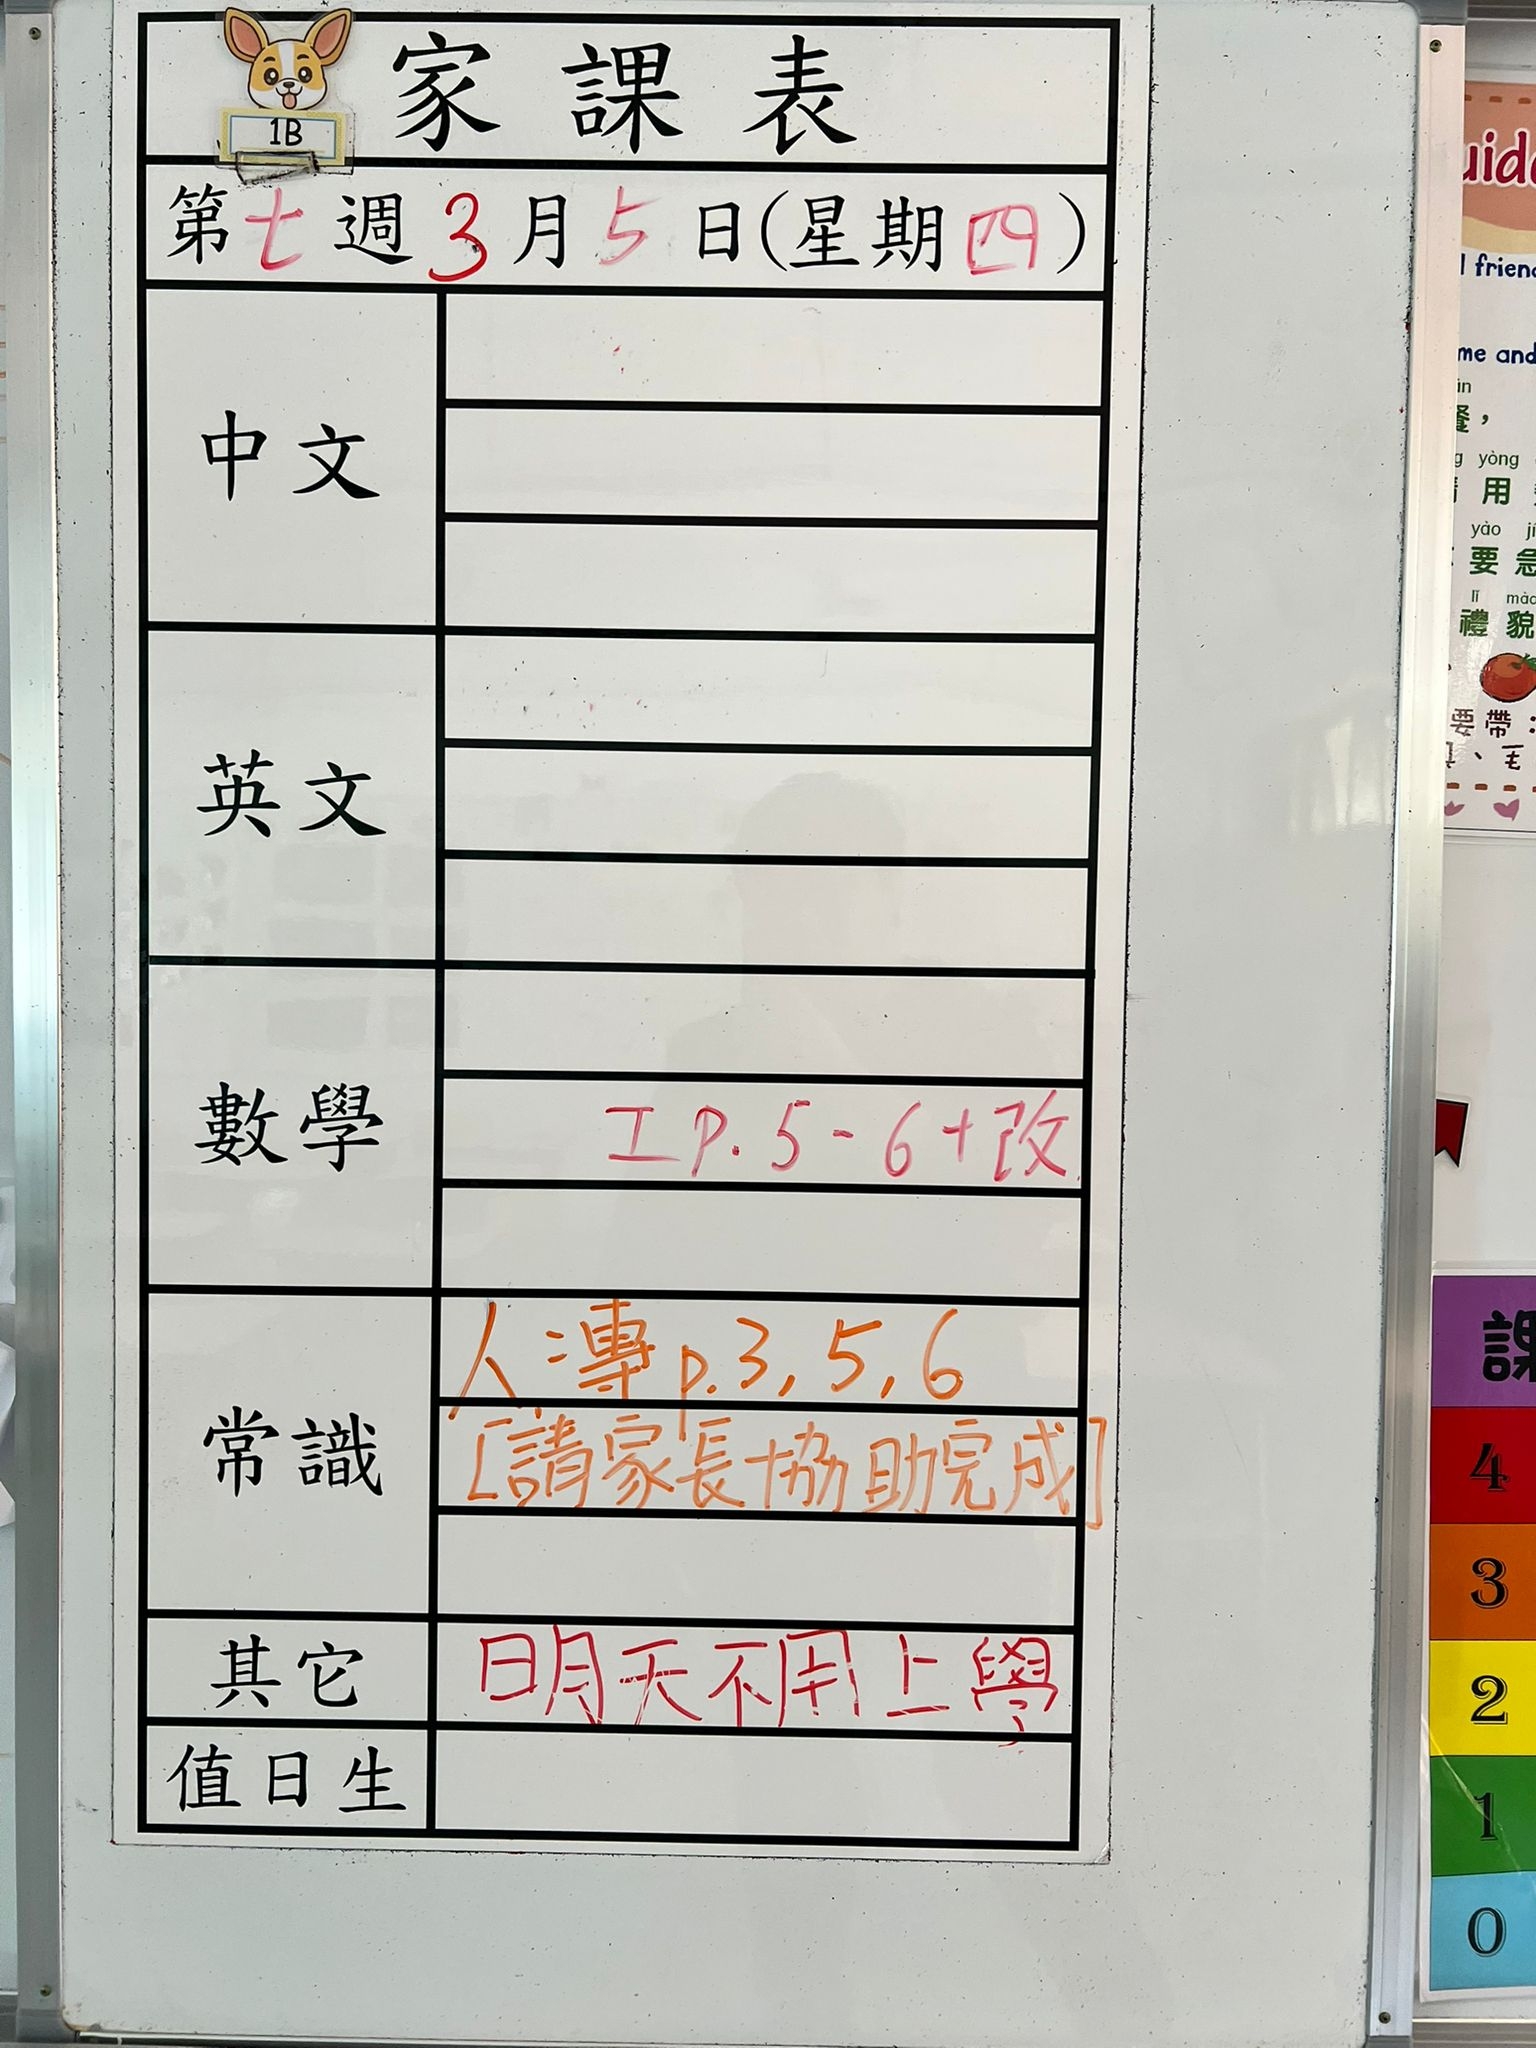 家課表
1B
第七週3月5日(星期四)
中文
英文
數學
工 p. 5 - 6 + 改
常識
人:專 p.3, 5, 6
[請家長協助完成]
其它
明天不用上學
值日生
uid
friend
me and
用
yòng
yào
要急
lǐ
禮貌
要帶：
課
4
3
2
1
0